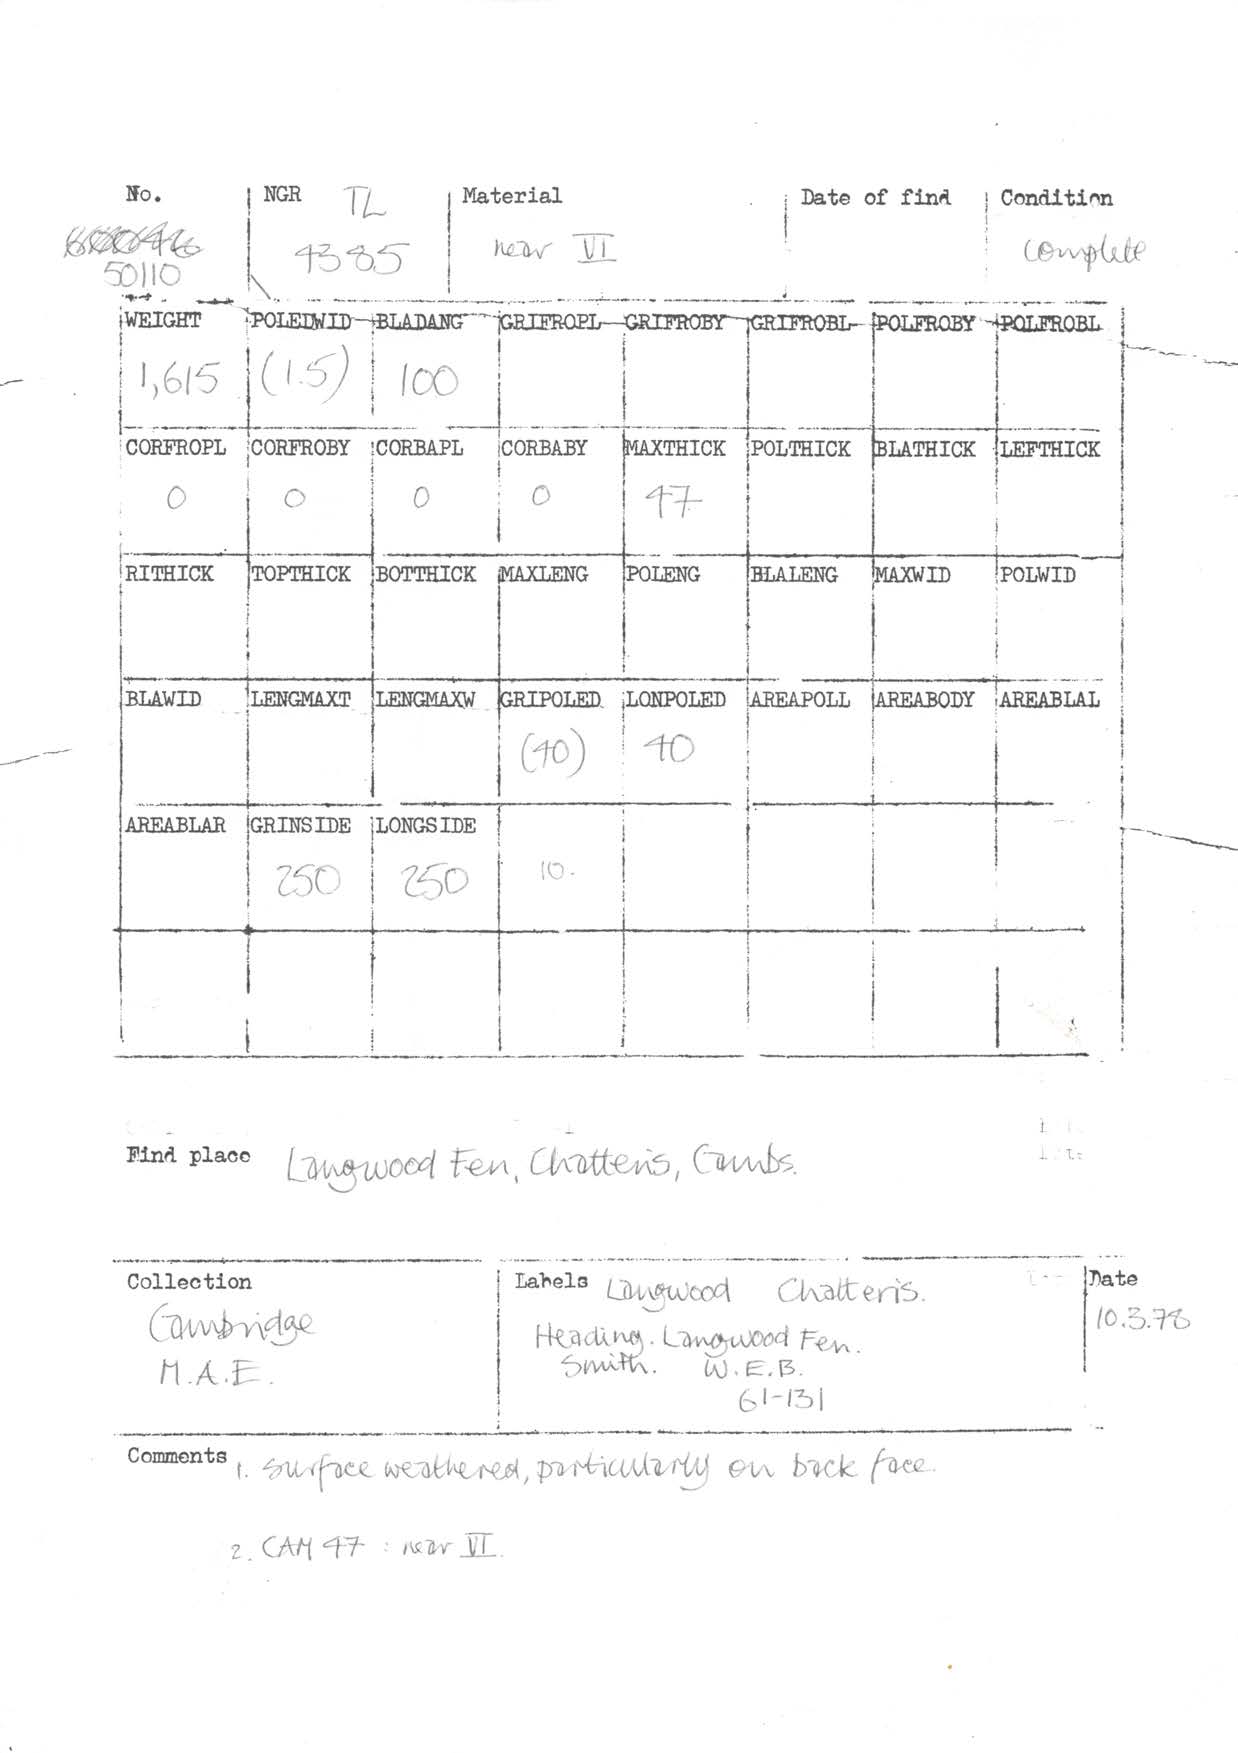 No. NGR TL Material Date of find Condition
50110 4385 near VI complete
WEIGHT POLEDWID BLADANG GRIFROPL GRIFROBY GRIFROBL POLFROBY POLFROBL
1,615 (1.5) 100
CORFROPL CORFROBY CORBAPL CORBABY MAXTHICK POLTHICK BLATHICK LEFTHICK
0 0 0 0 47
RITHICK TOPTHICK BOTTHICK MAXLENG POLENG BLALENG MAXWID POLWID
BLAWID LENGMAXT LENGMAXW GRIPOLED LONPOLED AREAPOLL AREABODY AREABLAL
(40) 40
AREABLAR GRINSIDE LONGSIDE
250 250 10.
Find place Langwood Fen, Chatteris, Cambs.
Collection Labels Langwood Chatteris. Date
Cambridge Heading. Langwood Fen. 10.3.78
M.A.E. Smith. W.E.B.
61-131
Comments 1. surface weathered, particularly on back face.
2. CAM 47 : near VI.